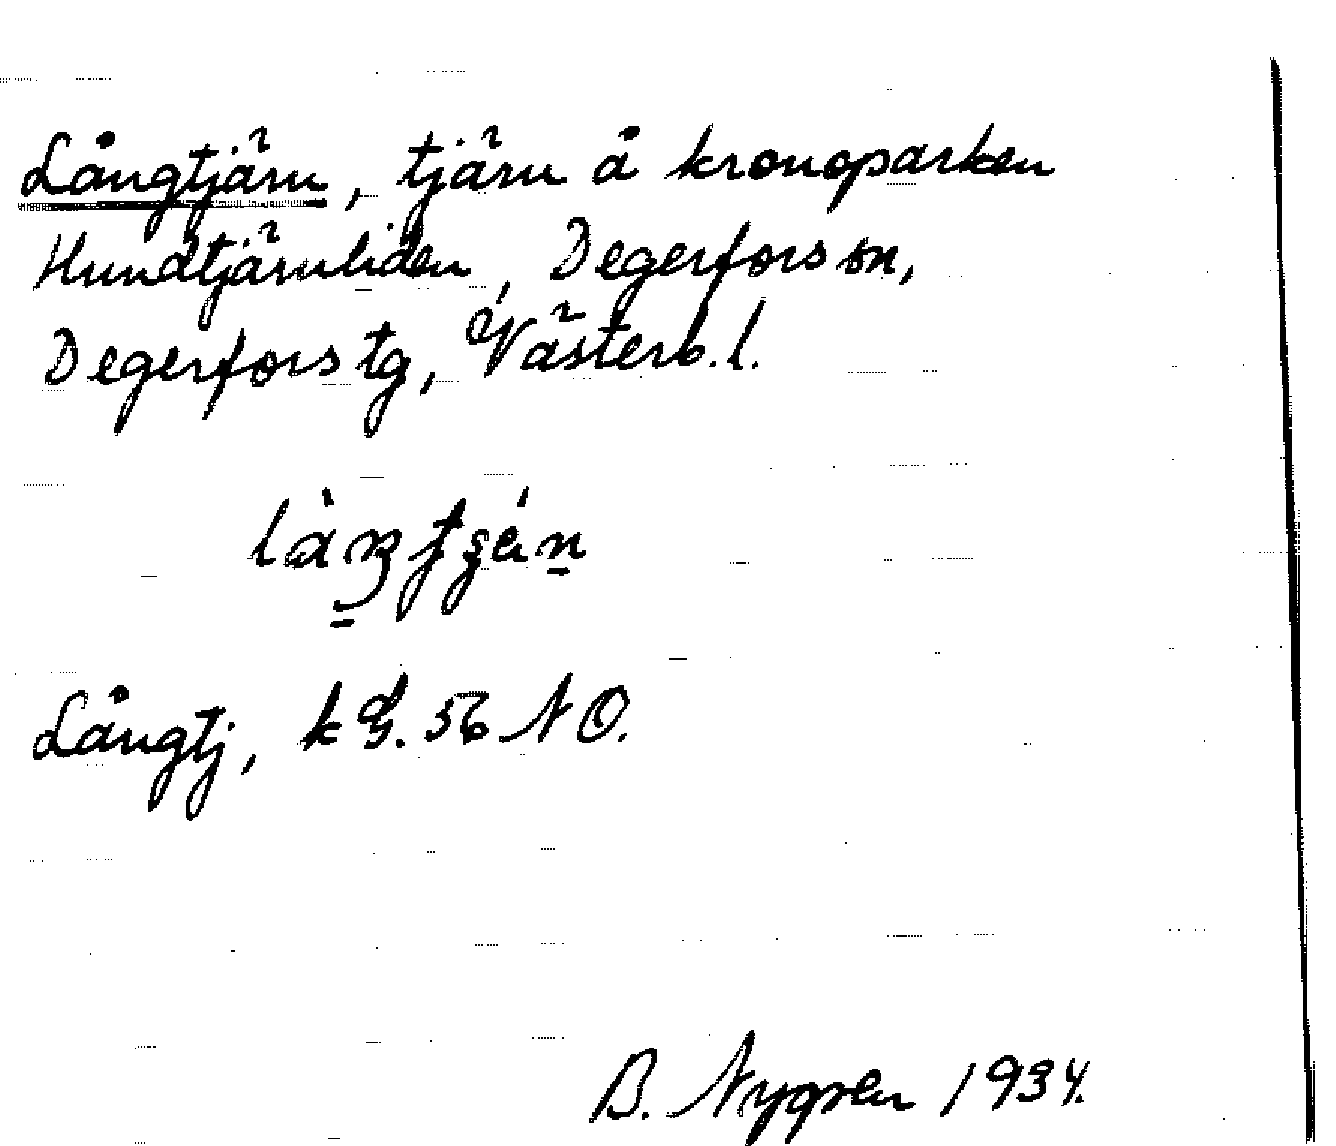 Långtjärn, tjärn å kronoparken
Hundtjärnliden, Degerfors sn,
Degerfors tg, Västerb. l.
Långtj, k bl. 56 NO.
B. Nygren 1934.